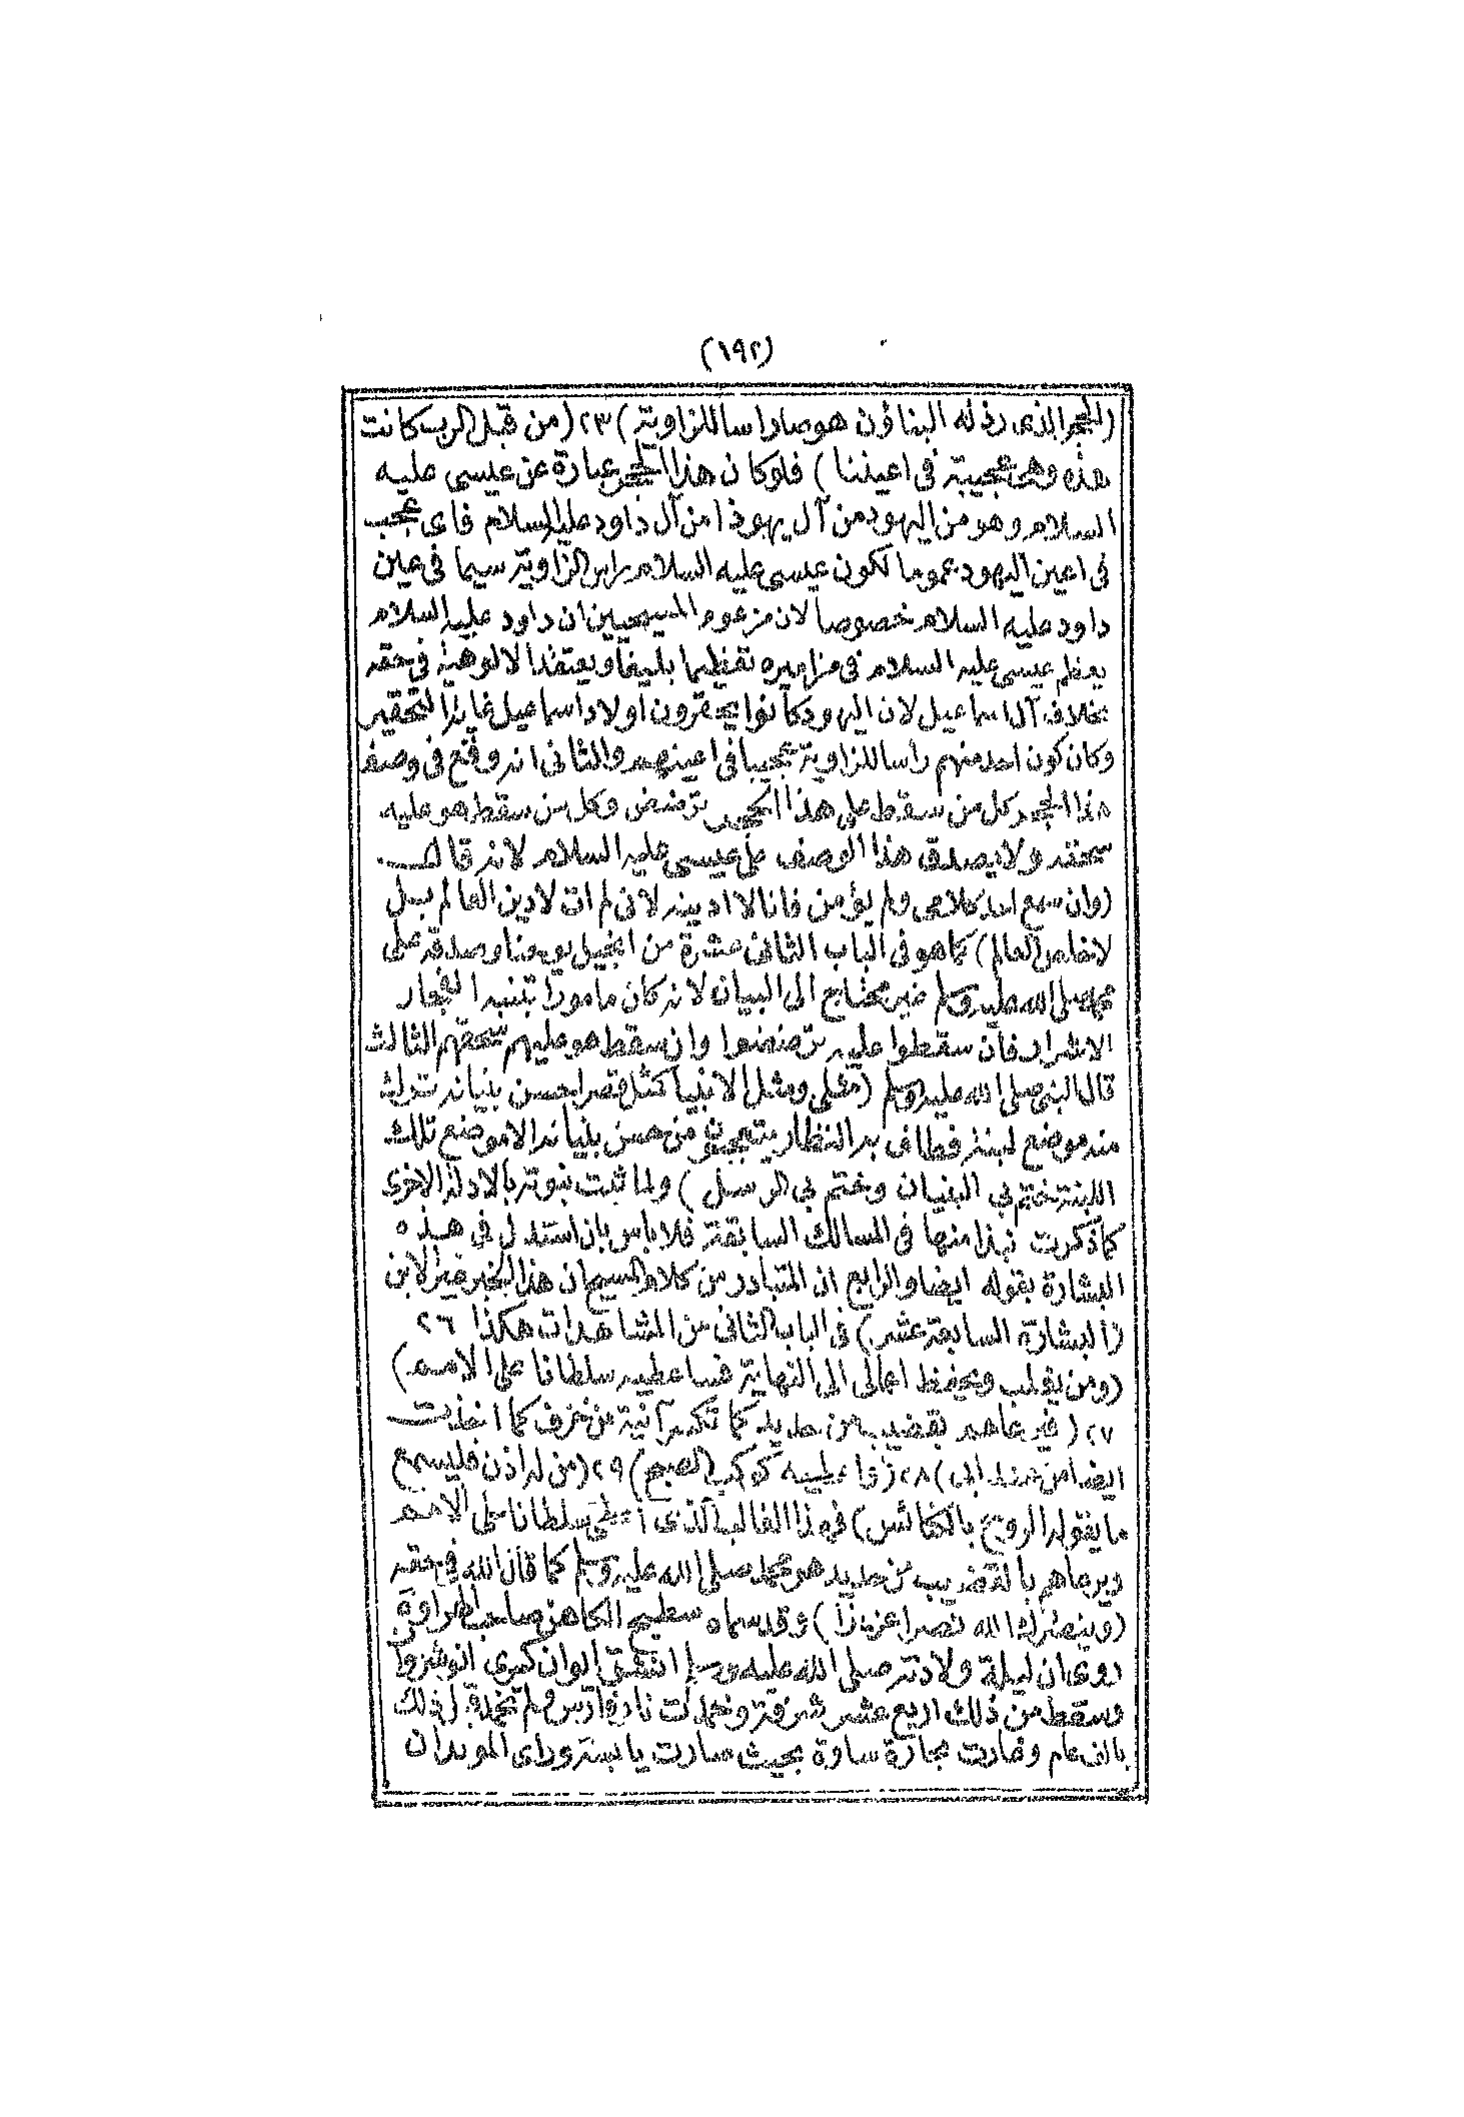 (١٩٢)
(الحجر الذى رذله البناؤن هو صار راسا للزاوية) ٢٣ (من قبل الرب كانت
هذه وهى عجيبة فى اعيننا) فلو كان هذا الحجر عبارة عن عيسى عليه
السلام وهو من اليهود من آل يهوذا من آل داود عليه السلام فاى عجب
فى اعين اليهود عموما لكون عيسى عليه السلام راس الزاوية سيما فى عين
داود عليه السلام خصوصا لان مزعوم المسيحيين ان داود عليه السلام
يعظم عيسى عليه السلام فى مزاميره تعظيما بليغا ويعتقد الالوهية فى حقه
بخلاف آل اسماعيل لان اليهود كانوا يحقرون اولاد اسماعيل غاية التحقير
وكان كون احد منهم راسا للزاوية عجيبا فى اعينهم والثانى انه وقع فى وصف
هذا الحجر كل من سقط على هذا الحجر ترضض وكل من سقط هو عليه
سحقته ولا يصدق هذا الوصف على عيسى عليه السلام لانه قال
(وان سمع احد كلامى ولم يؤمن فانا لا ادينه لانى لم ات لادين العالم بل
لاخلص العالم) كما هو فى الباب الثانى عشرة من انجيل يوحنا وصدقه على
محمد صلى الله عليه وسلم غير محتاج الى البيان لانه كان مامورا بتنبيه الفجار
الاشرار فان سقطوا عليه ترضضوا وان سقط هو عليهم سحقهم الثالث
قال النبى صلى الله عليه وسلم (مثلى ومثل الانبيا كمثل قصر احسن بنيانه ترك
منه موضع لبنة فطاف به النظار يتعجبون من حسن بنيانه الا موضع تلك
اللبنة ختم بى البنيان وختم بى الرسل) ولما ثبت نبوته بالادلة الاخرى
كما ذكرت نبذا منها فى المسالك السابقة فلا باس بان استدل فى هذه
البشارة بقوله ايضا والرابع ان المتبادر من كلام المسيح ان هذا الحجر غير الابن
(البشارة السابعة عشر) فى الباب الثانى من المشاهدات هكذا ٢٦
(ومن يغلب ويحفظ اعمالى الى النهاية فساعطيه سلطانا على الامم)
٢٧ (فيرعاهم بقضيب من حديد كما تكسر آنية من خزف كما اخذت
ايضا من عند ابى) ٢٨ (واعطيه كوكب الصبح) ٢٩ (من له اذن فليسمع
ما يقوله الروح بالكنائس) فهذا الغالب الذى اعطى سلطانا على الامم
ويرعاهم بالقضيب من حديد هو محمد صلى الله عليه وسلم كما قال الله فى حقه
(وينصرك الله نصرا عزيزا) وقد سماه سطيح الكاهن صاحب الهراوة
روى ان ليلة ولادته صلى الله عليه وسلم انشق ايوان كسرى انوشروا
وسقط من ذلك اربع عشر شرفة وخمدت نار فارس ولم تخمد قبل ذلك
بالف عام وغارت بحارة ساوة بحيث صارت يابسة وراى الموبدان